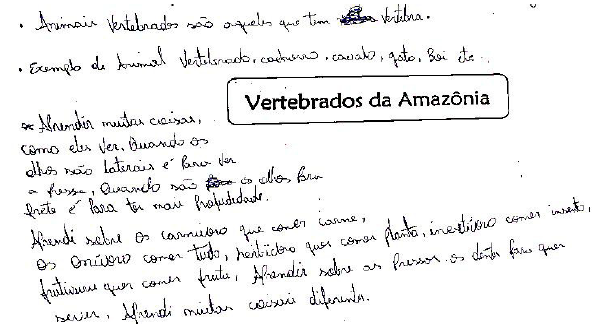 • Animais Vertebrados são aqueles que tem Vertebra.
• Exemplo de Animal Vertebrado, cachorro, cavalo, gato, Boi etc.
Vertebrados da Amazônia
* Aprendir muitas coisas,
como eles ver. Quando os
olhos são laterais é Para ver
a Pressa, Quando são os olhos Para
frete é Para ter mais profudidade.
Aprendi sobre os carnivoro que comer carne,
os onívoro comer tudo, herbívoro quer comer planta, insetivoro comer inseto,
quer comer fruta, Aprendir sobre as Pressas os dente Para quer
server, Aprendi muitas coisas diferente.